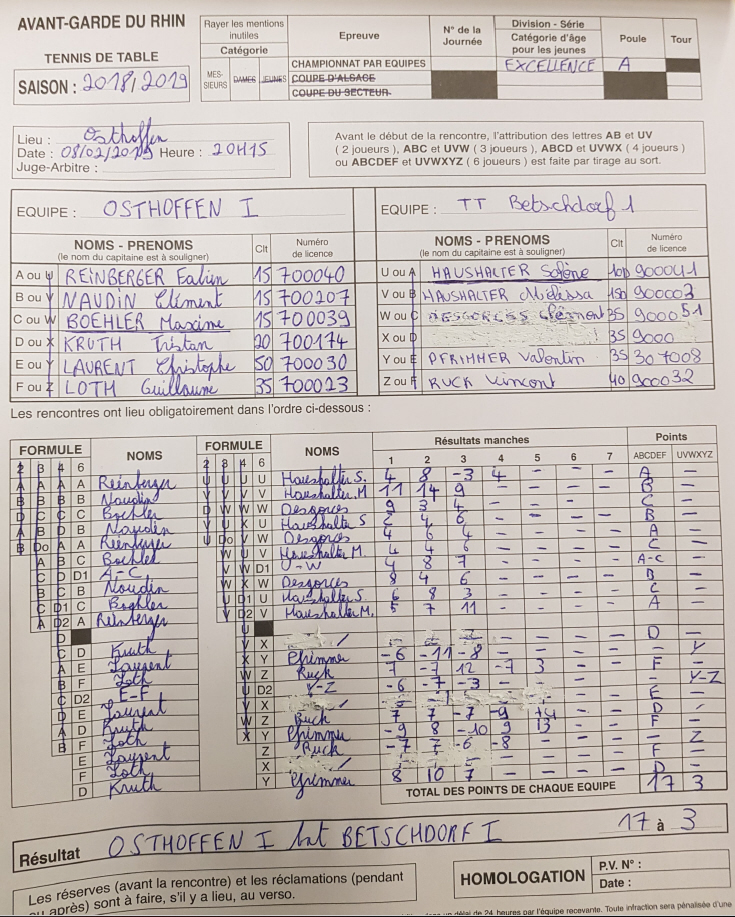 AVANT-GARDE DU RHIN
TENNIS DE TABLE
SAISON : 2018/2019
Rayer les mentions inutiles
Catégorie
MES-SIEURS DAMES JEUNES
Epreuve
CHAMPIONNAT PAR EQUIPES
COUPE D'ALSACE
COUPE DU SECTEUR
N° de la Journée
Division - Série
Catégorie d'âge pour les jeunes
EXCELLENCE
Poule
A
Tour
Lieu : Osthoffen
Date : 08/02/2019 Heure : 20H15
Juge-Arbitre :
Avant le début de la rencontre, l'attribution des lettres AB et UV
( 2 joueurs ), ABC et UVW ( 3 joueurs ), ABCD et UVWX ( 4 joueurs )
ou ABCDEF et UVWXYZ ( 6 joueurs ) est faite par tirage au sort.
EQUIPE : OSTHOFFEN I
NOMS - PRENOMS Clt Numéro de licence
(le nom du capitaine est à souligner)
A ou U REINBERGER Fabien 15 700040
B ou V NAUDIN Clément 15 700207
C ou W BOEHLER Maxime 15 700039
D ou X KRUTH Tristan 20 700174
E ou Y LAURENT Christophe 50 700030
F ou Z LOTH Guillaume 35 700023
EQUIPE : TT Betschdorf 1
NOMS - PRENOMS Clt Numéro de licence
(le nom du capitaine est à souligner)
U ou A HAUSHALTER 900041
V ou B HAUSHALTER Mélissa 900003
W ou C DESGORCES Clément 35 900051
X ou D 35 9000
Y ou E PFRIMMER Valentin 35 307008
Z ou F RUCK Vincent 40 900032
Les rencontres ont lieu obligatoirement dans l'ordre ci-dessous :
FORMULE NOMS FORMULE NOMS Résultats manches Points
2 3 4 6 2 3 4 6 1 2 3 4 5 6 7 ABCDEF UVWXYZ
A Reinberger U Haushalter S. 4 8 -3 4 - - - A -
B Naudin V Haushalter M 11 14 9 B -
C Boehler W Desgorces 9 3 4 - - - C -
B Naudin U Haushalter S 2 4 6 - - - - B -
A Reinberger W Desgorces 4 6 4 - - - - A -
C Boehler V Haushalter M. 4 4 6 - - - - C -
D1 A-C D1 U-W 4 8 7 - - - - A-C -
B Naudin W Desgorces 8 4 6 - - - - B -
C Boehler U Haushalter S. 6 8 3 - - - - C -
A Reinberger V Haushalter M. 5 7 11 - - - - A -
X D -
D Kruth Y Pfrimmer -6 -11 -8 - - - - - Y
E Laurent Z Ruck 7 -7 12 -7 3 - - F -
F Loth D2 Y-Z -6 -7 -3 - - - - - Y-Z
D2 E-F X E -
E Laurent Z Ruck 7 7 -7 -9 D
D Kruth Y Pfrimmer -9 8 -10 9 13 - - F -
F Loth Z Ruck -7 7 -6 -8 - - - - Z
E Laurent X F -
F Loth Y Pfrimmer 8 10 7 - - - - D -
D Kruth
TOTAL DES POINTS DE CHAQUE EQUIPE 17 3
Résultat OSTHOFFEN I bat BETSCHDORF I 17 à 3
Les réserves (avant la rencontre) et les réclamations (pendant
ou après) sont à faire, s'il y a lieu, au verso.
HOMOLOGATION
P.V. N° :
Date :
délai de 24 heures par l'équipe recevante. Toute infraction sera pénalisée d'une